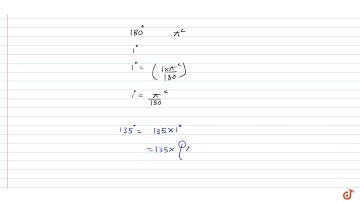 180° π^c
1°
1° = (1×π/180)^c
1° = π/180^c
135° = 135×1°
= 135× (